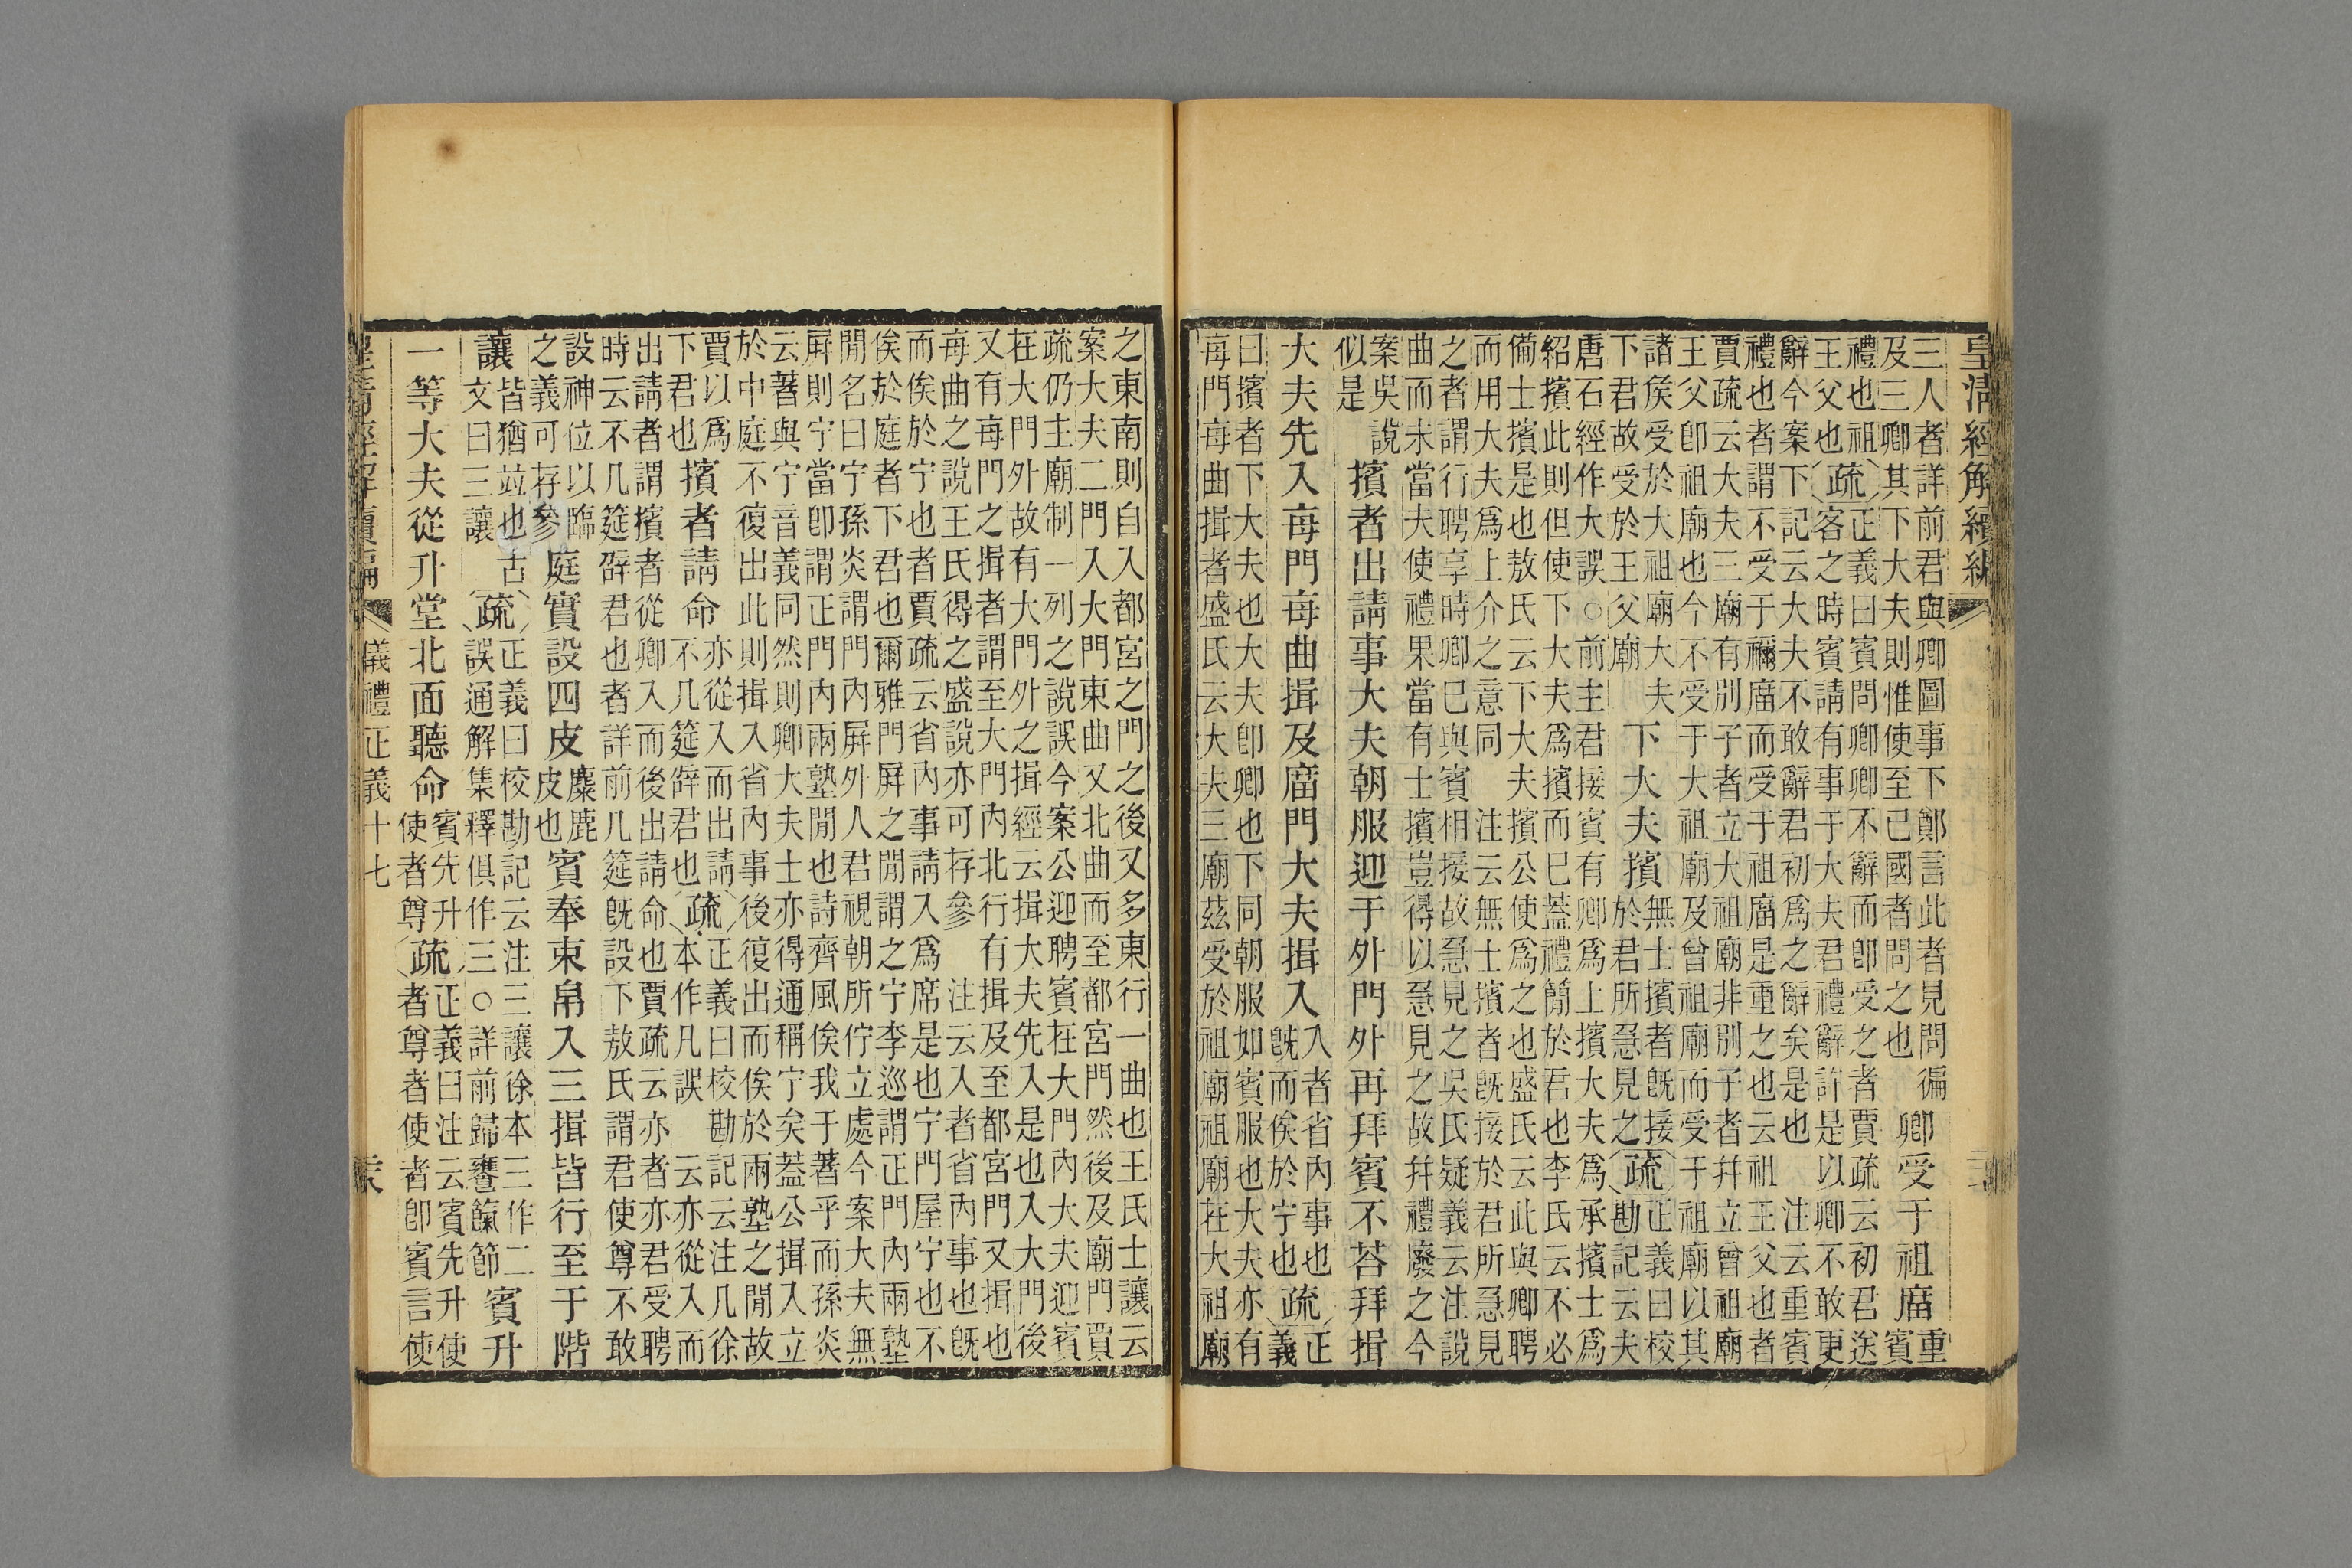 皇清經解續編
三人者詳前君與卿圖事下鄭言此者見問徧
及三卿其下大夫則惟使至己國者問之也
卿受于祖庿
重賓
禮也祖
王父也
疏
正義曰賓問卿卿不辭而卽受之者賈疏云初君送
客之時賓請有事于大夫君禮辭許是以卿不敢更
辭今案下記云大夫不敢辭君初爲之辭矣是也 注云重賓
禮也者謂不受于禰庿而受于祖庿是重之也云祖王父也者
賈疏云大夫三廟有別子者立大祖廟非別子者幷立曾祖廟
王父卽祖廟也今不受于大祖廟及曾祖廟而受于祖廟以其
諸侯受於大祖廟大夫
下君故受於王父廟
下大夫擯
無士擯者旣接
於君所急見之
疏
正義曰校
勘記云夫
唐石經作大誤○前主君接賓有卿爲上擯大夫爲承擯士爲
紹擯此則但使下大夫爲擯而已蓋禮簡於君也李氏云不必
備士擯是也敖氏云下大夫擯公使爲之也盛氏云此與卿聘
而用大夫爲上介之意同 注云無士擯者旣接於君所急見
之者謂行聘享時卿已與賓相接故急見之吳氏疑義云注說
曲而未當夫使禮果當有士擯豈得以急見之故幷禮廢之今
案吳說
似是
擯者出請事大夫朝服迎于外門外再拜賓不荅拜揖
大夫先入每門每曲揖及庿門大夫揖入
入者省內事也
旣而俟於宁也
疏
正
義
曰擯者下大夫也大夫卽卿也下同朝服如賓服也大夫亦有
每門每曲揖者盛氏云大夫三廟茲受於祖廟祖廟在大祖廟
之東南則自入都宮之門之後又多東行一曲也王氏士讓云
案大夫二門入大門東曲又北曲而至都宮門然後及廟門賈
疏仍主廟制一列之說誤今案公迎聘賓在大門內大夫迎賓
在大門外故有大門外之揖經云揖大夫先入是也入大門後
又有每門之揖者謂至大門內北行有揖及至都宮門又揖也
每曲之說王氏得之盛說亦可存參 注云入者省內事也旣
而俟於宁也者賈疏云省內事請入爲席是也宁門屋宁也不
俟於庭者下君也爾雅門屏之閒謂之宁李巡謂正門內兩塾
閒名曰宁孫炎謂門內屏外人君視朝所佇立處今案大夫無
屏則宁當卽謂正門內兩塾閒也詩齊風俟我于著乎而孫炎
云著與宁音義同然則卿大夫士亦得通稱宁矣蓋公揖入立
於中庭不復出此則揖入省內事後復出而俟於兩塾之閒故
賈以爲
下君也
擯者請命
亦從入而出請
不几筵辟君也
疏
正義曰校勘記云注几徐
本作凡誤 云亦從入而
出請者謂擯者從卿入而後出請命也賈疏云亦者亦君受聘
時云不几筵辟君也者詳前几筵旣設下敖氏謂君使尊不敢
設神位以臨
之義可存參
庭實設四皮
麋鹿
皮也
賓奉束帛入三揖皆行至于階
讓
皆猶竝也古
文曰三讓
疏
正義曰校勘記云注三讓徐本三作二
誤通解集釋俱作三○詳前歸饔餼節
賓升
一等大夫從升堂北面聽命
賓先升
使者尊
疏
正義曰注云賓先升使
者尊者使者卽賓言使
皇清經解續編
儀禮正義十七